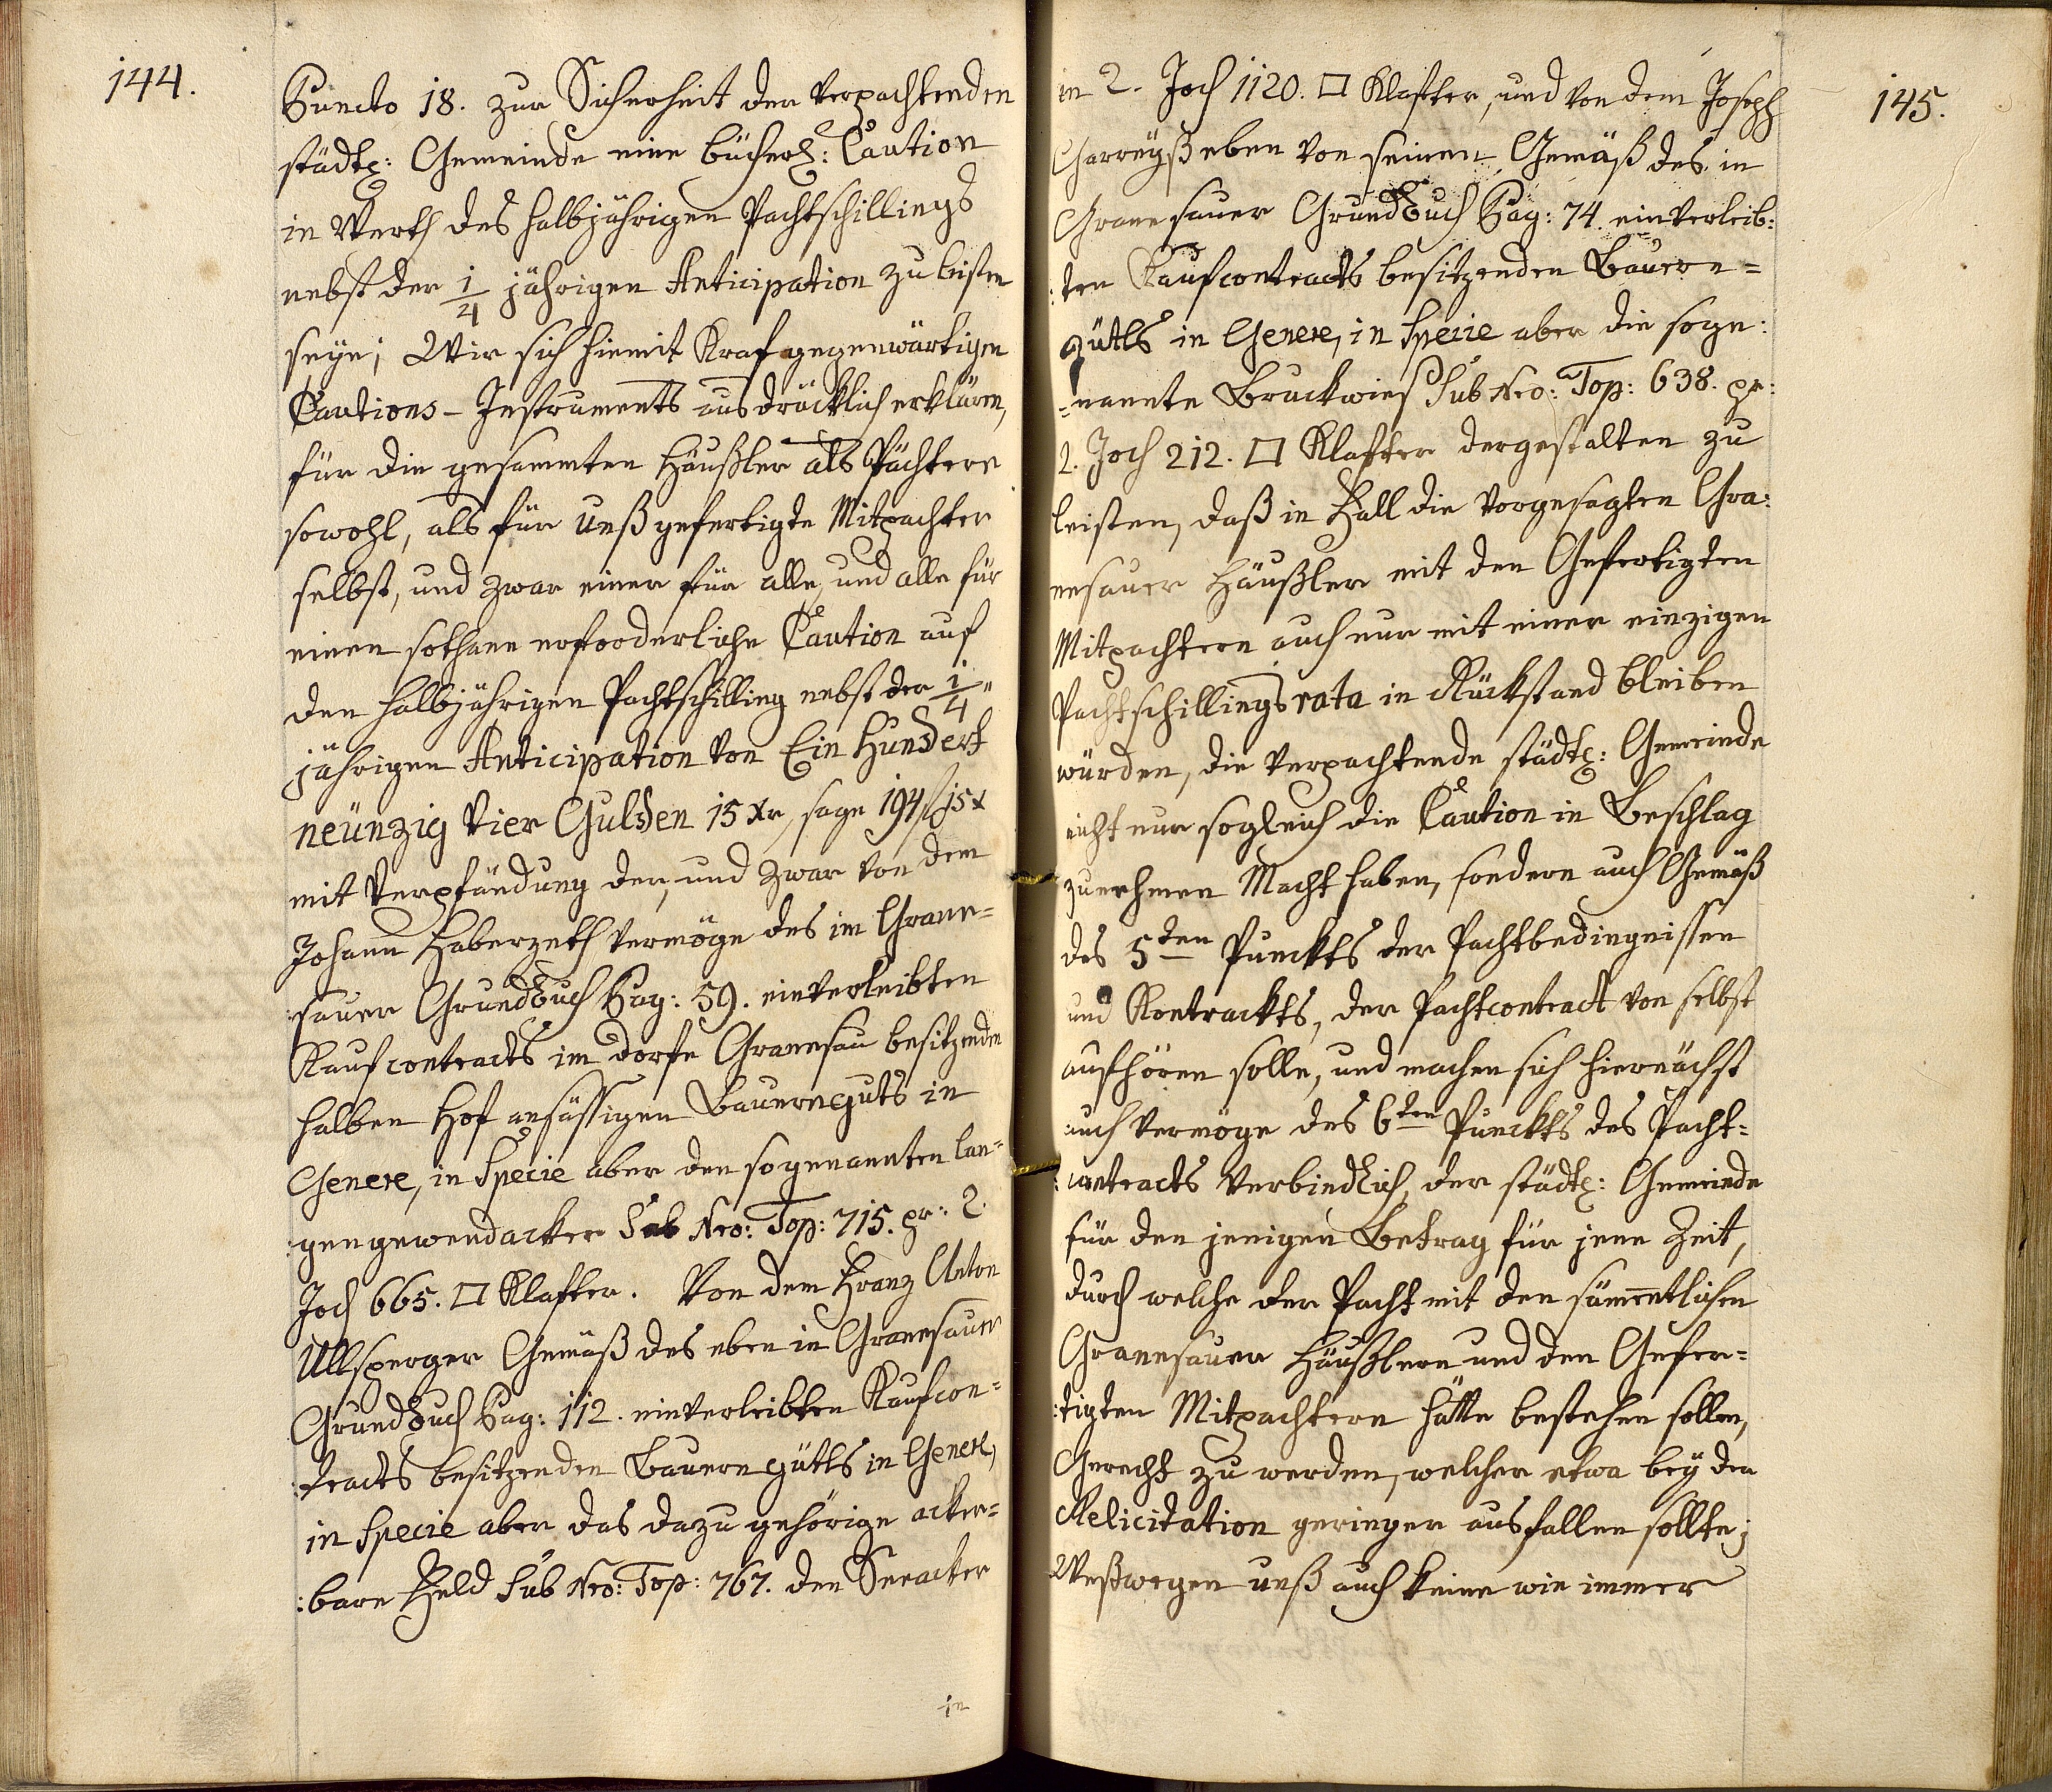 144.
Puncto 18. zur Sicherheit der verpachtenden
städt: Gemeinde eine bücherl: Caution
in Werth des halbjährigen Pachtschillings
nebst der 1/4 jährigen Anticipation zu leisten
seye; Wir sich hiemit Kraf gegenwärtigen
Cautions - Instruments ausdrücklich erklären,
für die gesammten Häußler als Pächtere
sowohl, als für unß gefertigte Mitpachter
selbst, und zwar einer für alle, und alle für
einen sothane erforderliche Caution auf
den halbjährigen Pachtschilling nebst der 1/4
jährigen Anticipation von Ein Hundert
neünzig vier Gulden 15 Xr, sage 194 f 15 x
mit Verpfändung der, und zwar von dem
Johann Haberzeth vermöge des im Grane=
:sauer Grundbuch Pag: 59. einverleibten
Kaufcontracts im dorfe Granesau besitzenden
halben Hof ansässigen Bauernguts in
Genere, in Specie aber den sogenannten lan=
:gengewendacker Sub Nro: Top: 715. pr: 2.
Joch 665. □ Klafter. Von dem Franz Anton
Ullsperger Gemäß des eben in Granesauer
Grundbuch Pag: 112. einverleibten Kaufcon=
:tracts besitzenden Bauerngütls in Genere,
in Specie aber das dazu gehörige acker=
:bare Feld Sub Nro: Top: 767. den Seeacker
in
145.
in 2. Joch 1120. □ Klafter, und von dem Joseph
eben von seinen Gemäß des in
Granesauer Grundbuch Pag: 74. einverleib:
:ten Kaufcontracts besitzenden Bauern=
gütls in Genere, in Specie aber die soge:
=nannte Bruckwies Sub Nro: Top: 638. pr:
2. Joch 212. □ Klafter dergestalten zu
leisten, daß in Fall die vorgesagten Gra:
nesauer Häußler mit den Gefertigten
Mitpachtern auch nur mit einer einzigen
Pachtschillings rata in Rückstand bleiben
würden, die verpachtende städt: Gemeinde
nicht nur sogleich die Caution in Beschlag
zunehmen Macht haben, sondern auch Gemäß
des 5ten Punckts der Pachtbedingnissen
und Kontrackts, der Pachtcontract von selbst
aufhören solle, und machen sich hiernächst
auch vermöge des 6ten Punckts des Pacht=
:contracts verbindlich, der städt: Gemeinde
für den jenigen Betrag für jene Zeit,
durch welche der Pacht mit den sämmentlichen
Granesauer Häußlern und den Gefer=
:tigten Mitpachtern hätte bestehen sollen,
Gerecht zu werden, welcher etwa bey der
Relicitation geringer ausfallen sollte;
Weßwegen unß auch keine wie immer